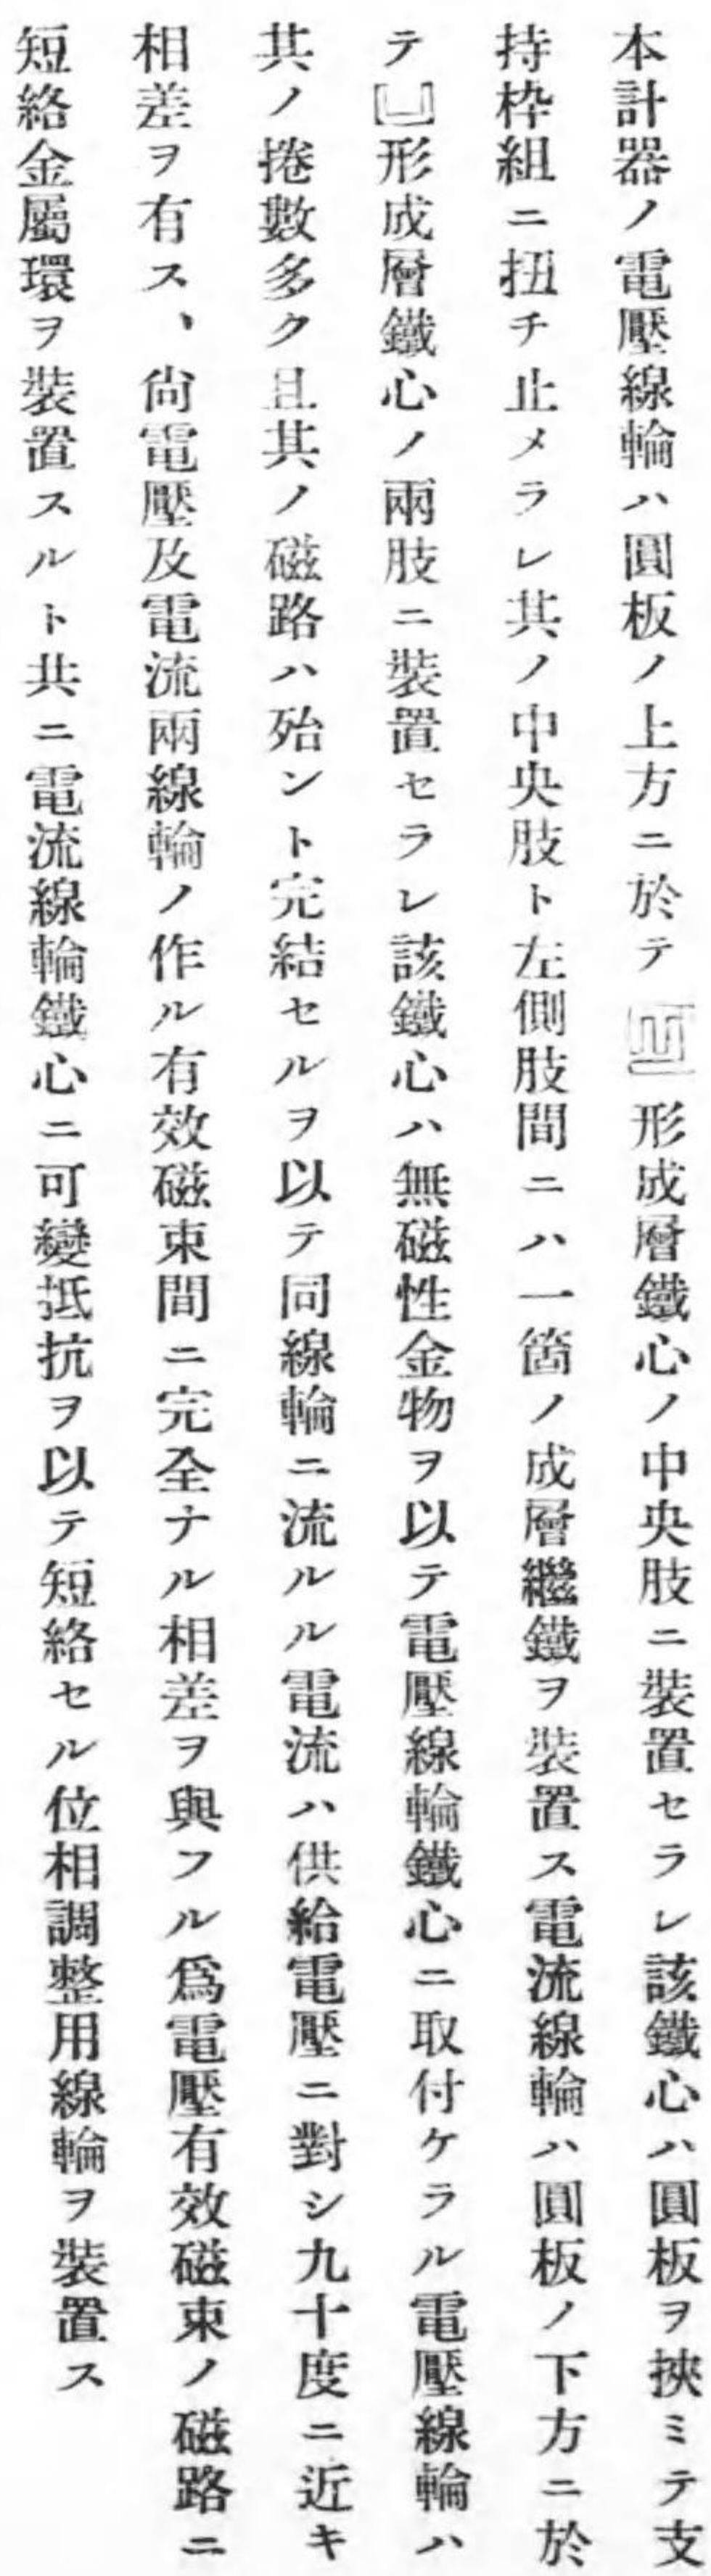 本計器ノ電壓線輪ハ圓板ノ上方ニ於テ形成層鐵心ノ中央肢ニ裝置セラレ該鐵心ハ圓板ヲ挾ミテ支
持枠組ニ扭チ止メラレ其ノ中央肢ト左側肢間ニハ一箇ノ成層繼鐵ヲ裝置ス電流線輪ハ圓板ノ下方ニ於
テ形成層鐵心ノ兩肢ニ裝置セラレ該鐵心ハ無磁性金物ヲ以テ電壓線輪鐵心ニ取付ケラル電壓線輪ハ
其ノ捲數多ク且其ノ磁路ハ殆ント完結セルヲ以テ同線輪ニ流ルル電流ハ供給電壓ニ對シ九十度ニ近キ
相差ヲ有ス、尙電壓及電流兩線輪ノ作ル有效磁束間ニ完全ナル相差ヲ與フル爲電壓有效磁束ノ磁路ニ
短絡金屬環ヲ裝置スルト共ニ電流線輪鐵心ニ可變抵抗ヲ以テ短絡セル位相調整用線輪ヲ裝置ス